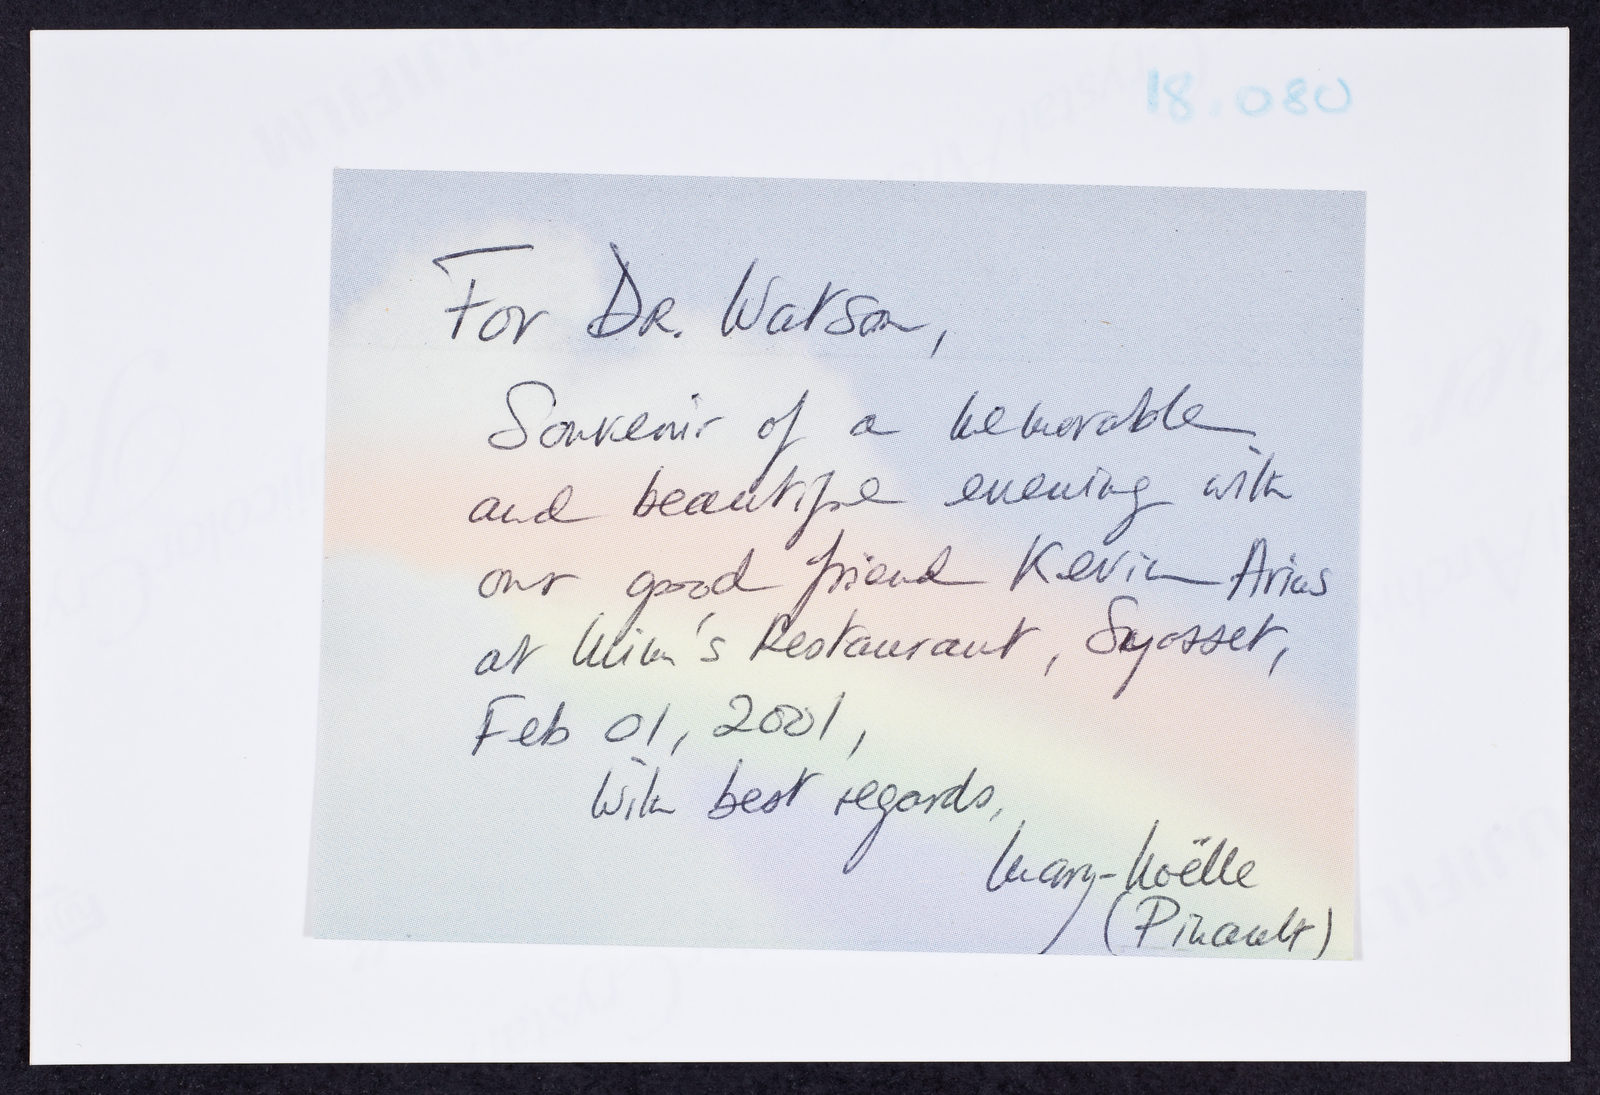 18.080
For DR. Watson,
Souvenir of a memorable
and beautiful evening with
our good friend Kevin Arias
at Mim's Restaurant, Syosset,
Feb 01, 2001,
With best regards,
Mary-Noëlle
(Pinault)